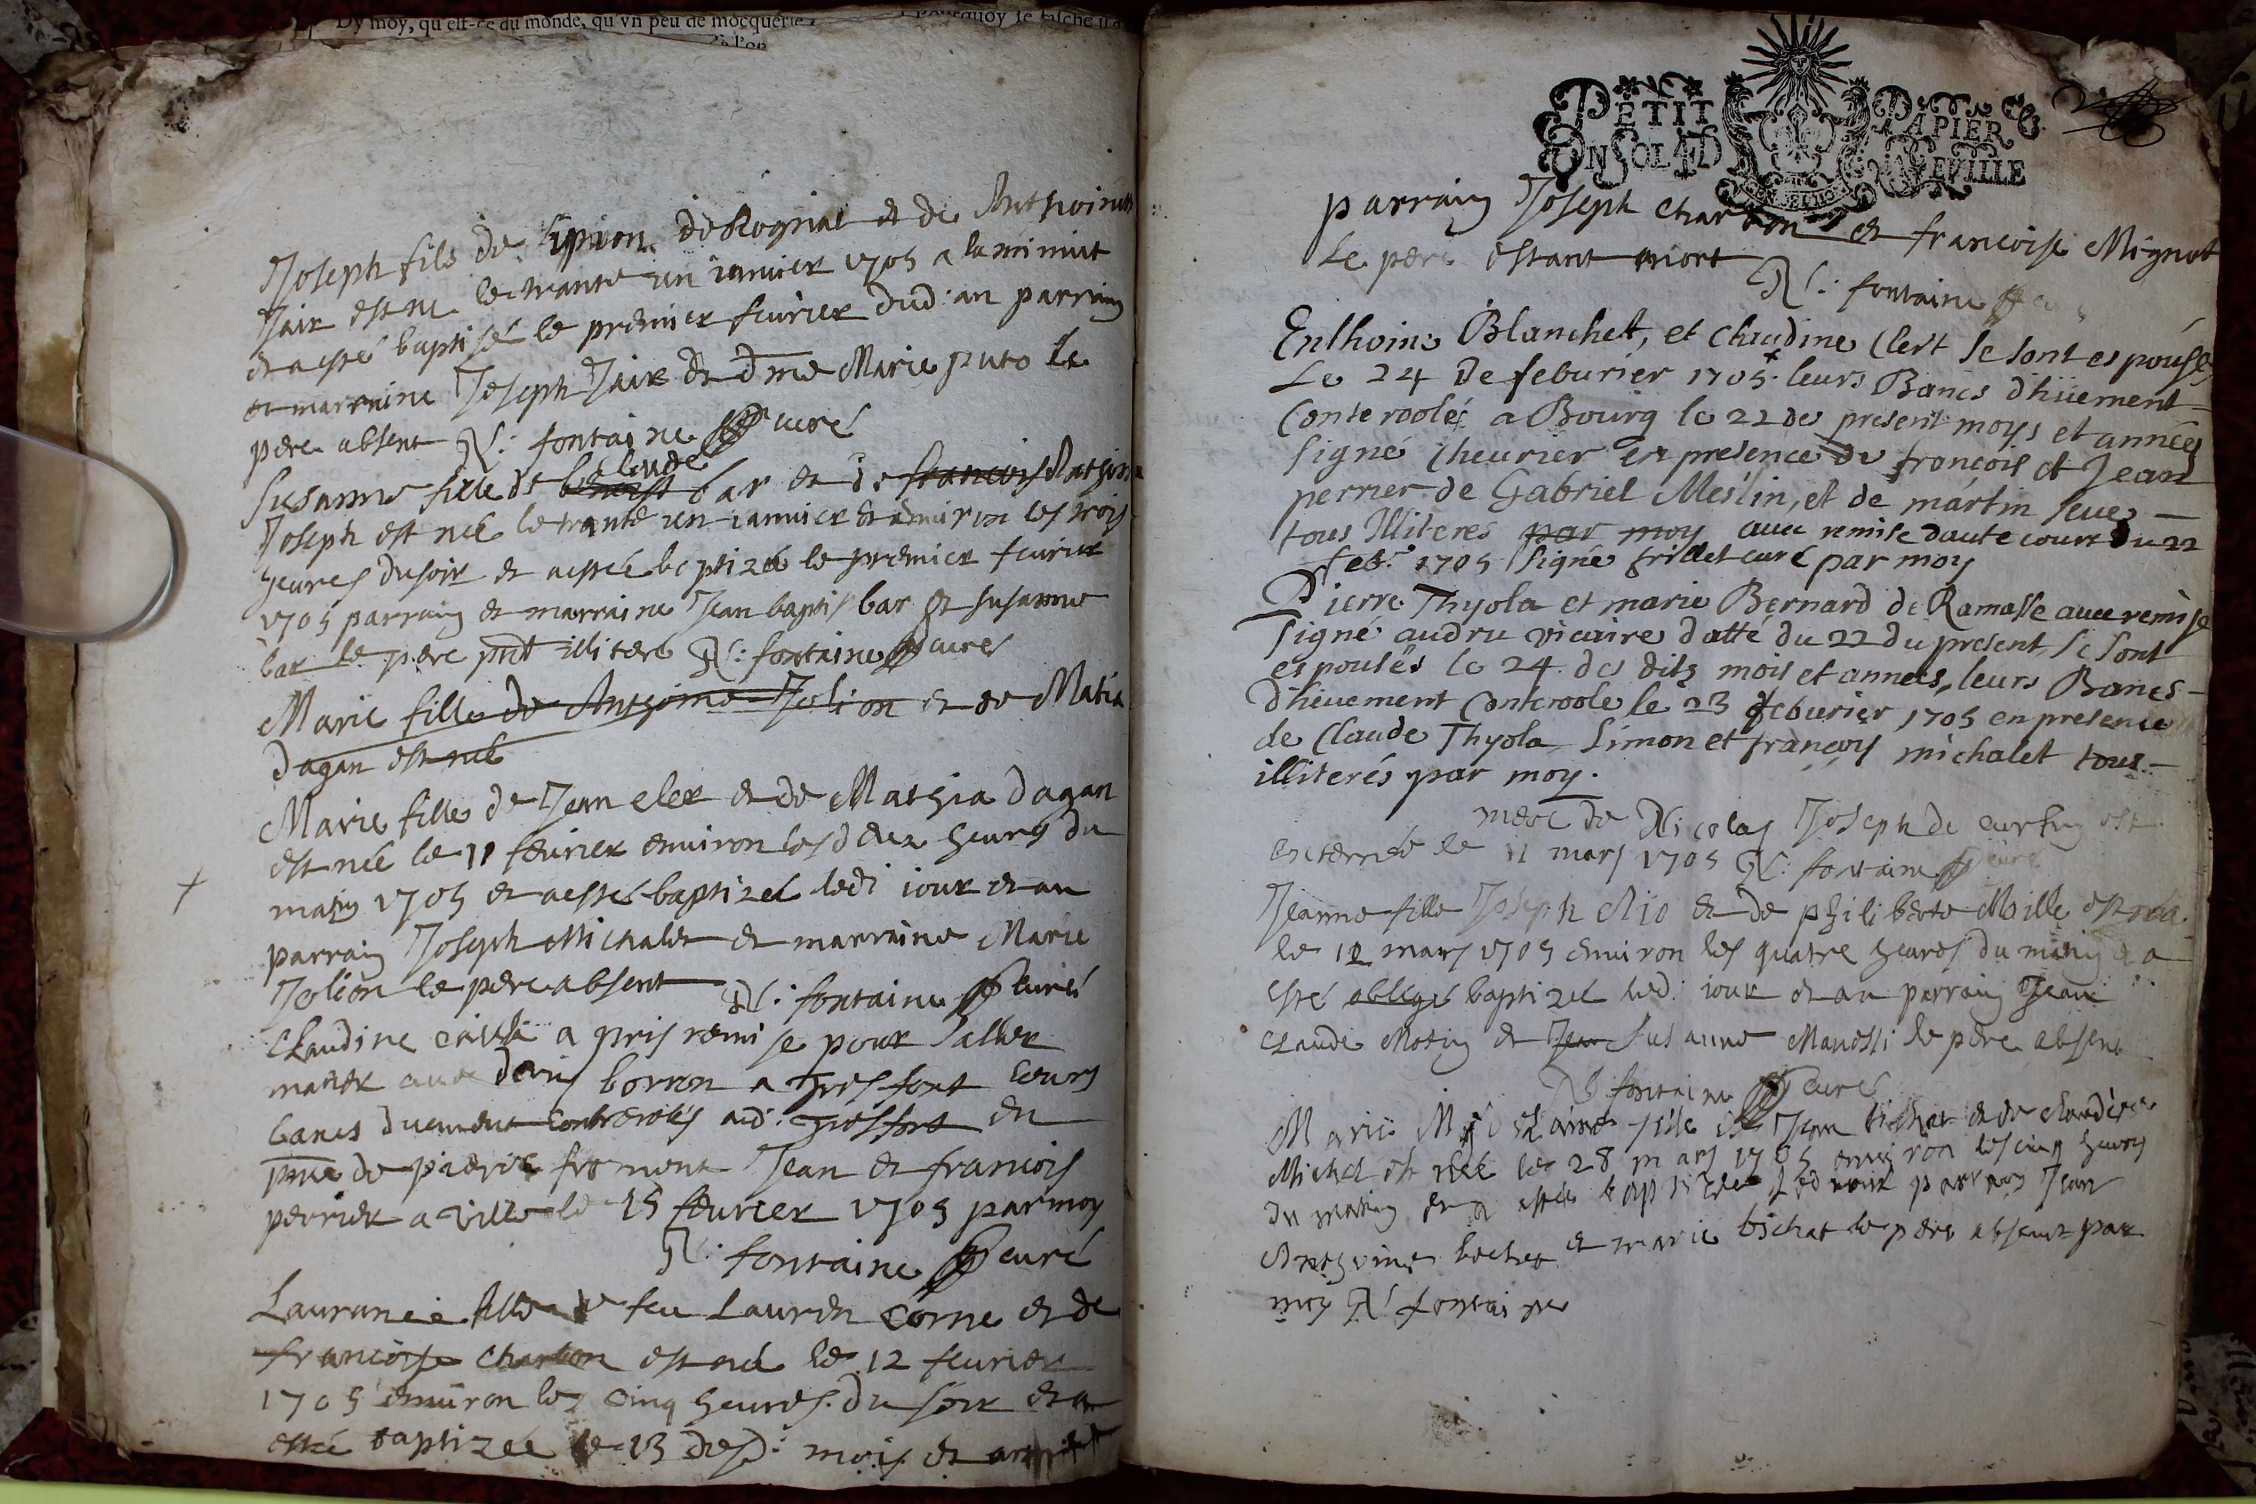 Dy moy, qu'est-ce du monde, qu'vn peu de mocquerie
Joseph fils de Sipion de Rognat et de Anthoinette
Jair est né le trante un janvier 1705 a la minuit
et a esté baptisé le premier fevrier dud: an parrain
et marraine Joseph Jair et dme Marie puto le
pere absent N: fontaine curé
Susanne fille de benoist claude bar et de francois Mathie
Joseph est née le trante un janvier et environ les trois
heures du soir et a estée baptizée le premier fevrier
1705 parrain et marraine Jean baptis bar et susanne
bar le pere pnt illiteré N: fontaine curé
Marie fille de Anthoine Jolion et de Matia
dagan est née
Marie fille de Jean cler et de Mathia dagan
est née le 11 fevrier environ les deux heures du
matin 1705 et a esté baptizée ledi jour et an
parrain Joseph Michalet et marraine Marie
Jolion le pere absent N: fontaine curé
Claudine a pris remise pour saller
marier avec denis borron a Tresfort leurs
bancs duement controlés aud: Tresfort en
pnce de pierre froment Jean et francois
perrier a ville le 15 fevrier 1705 par moy
N: fontaine curé
Laurance fille de feu Lauren Corne et de
francoise Charbon est née le 12 fevrier
1705 environ les cinq heures du soir et a
esté baptizée le 13 desd: mois et an
PETIT PAPIER
UN SOL 4 D LA FEVILLE
parrain Joseph Charbon et francoise Mignot
Le pere estant mort
N: fontaine
Enthoine Blanchet, et Claudine Clert se sont espousés
Le 24 de feburier 1705 leurs Bancs dhüement
Conteroolés a Bourg le 22 des present moys et années
signé cheurier en presence de françois et Jean
perrier de Gabriel Meslin, et de martin seue
tous Illiteres par moy avec remise dautecourt du 22
feb. 1705 signé grillet curé par moy
Pierre Thyola et marie Bernard de Ramasse avec remise
signé audru vicaire datté du 22 du present, se sont
espousés le 24 des dits mois et années, leurs Bancs
dhüement Conteroole le 23 feburier 1705 en presence
de Claude Thyola Simon et françoys michalet tous
illiterés par moy.
mere de Nicolas Joseph de curtin est
enterrée le 11 mars 1705 N: fontaine curé
Jeanne fille Joseph Nio et de philiberte Mille est née
le 12 mars 1705 environ les quatre heures du matin et a
esté obligé baptizée led: jour et an parrain Jean
Claude Motin et Jean Susanne Manessi le pere absent
N fontaine curé
Marie fille de Jean bichat et de claudine
Michel est née le 28 mars 1705 environ les cinq heures
du matin et a estée baptizée led jour parrain Jean
Anthoine bochet et marie bichat le pere absent par
moy N: fontaine